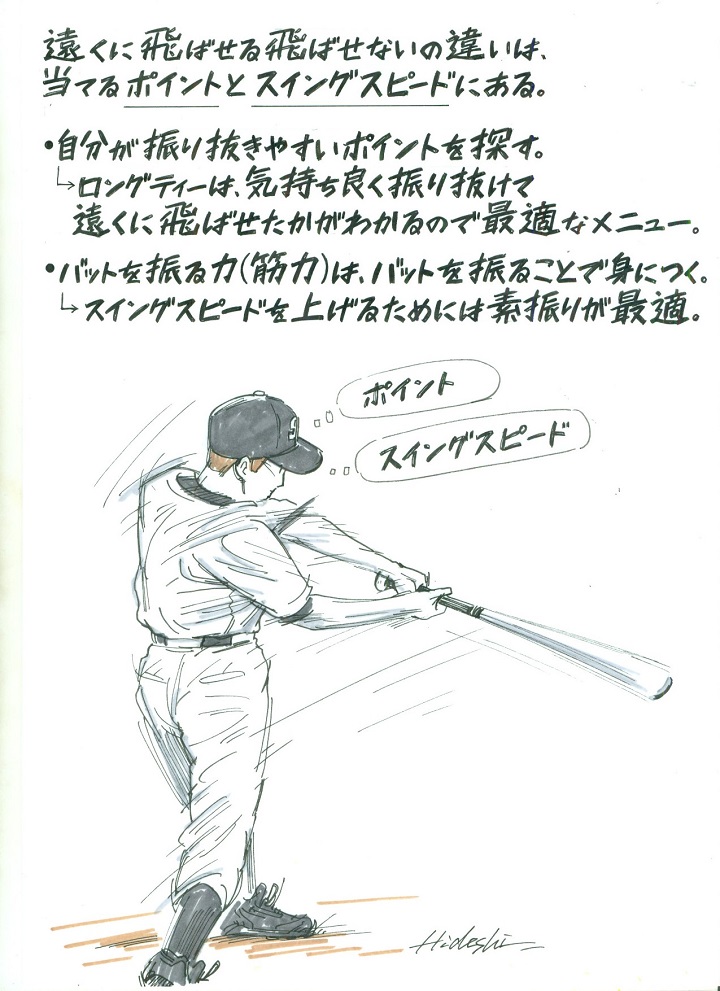 遠くに飛ばせる飛ばせないの違いは、
当てるポイントとスイングスピードにある。
・自分が振り抜きやすいポイントを探す。
↳ロングティーは、気持ち良く振り抜けて
遠くに飛ばせたかがわかるので最適なメニュー。
・バットを振る力(筋力)は、バットを振ることで身につく。
↳スイングスピードを上げるためには素振りが最適。
ポイント
スイングスピード
Hideshi